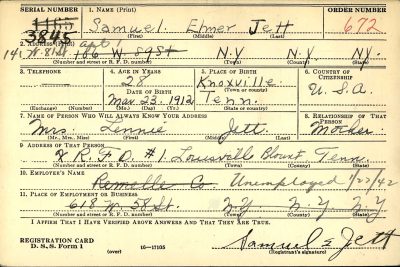 SERIAL NUMBER 1. NAME (Print) ORDER NUMBER
1165
3845 Samuel Elmer Jett 672
(First) (Middle) (Last)
2. ADDRESS (Print) apt
141 W 81st 186 W 89 St N.Y N.Y N.Y.
(Number and street or R. F. D. number) (Town) (County) (State)
3. TELEPHONE 4. AGE IN YEARS 5. PLACE OF BIRTH 6. COUNTRY OF CITIZENSHIP
28 Knoxville
DATE OF BIRTH (Town or county)
Mar. 23. 1912 Tenn. U.S.A.
(Exchange) (Number) (Mo.) (Day) (Yr.) (State or country)
7. NAME OF PERSON WHO WILL ALWAYS KNOW YOUR ADDRESS 8. RELATIONSHIP OF THAT PERSON
Mrs. Lennie Jett. Mother.
(Mr., Mrs., Miss) (First) (Middle) (Last)
9. ADDRESS OF THAT PERSON
R.F.D. #1 Louisvell Blount Tenn.
(Number and street or R. F. D. number) (Town) (County) (State)
10. EMPLOYER'S NAME
Co. Unemployed 1/22/42
11. PLACE OF EMPLOYMENT OR BUSINESS
618 W. 58 St. N.Y N.Y N.Y
(Number and street or R. F. D. number) (Town) (County) (State)
I AFFIRM THAT I HAVE VERIFIED ABOVE ANSWERS AND THAT THEY ARE TRUE.
REGISTRATION CARD
D. S. S. Form 1 (over) 16—17105 Samuel E Jett
(Registrant's signature)